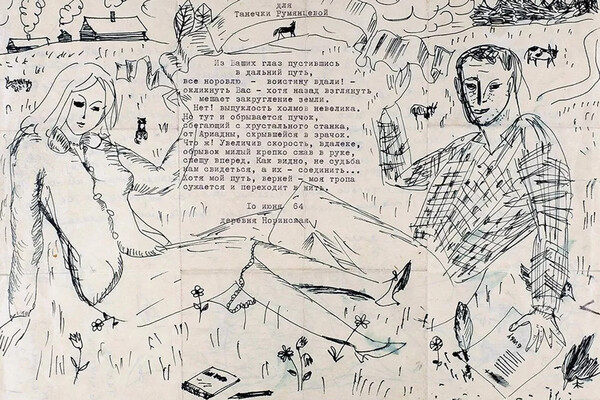 для
Танечки Румянцевой
Из Ваших глаз пустившись
в дальний путь,
все норовлю - воистину вдали! -
окликнуть Вас - хотя назад взглянуть
мешает закругление земли.
Нет! выпуклость холмов невелика.
Но тут и обрывается пучок,
сбегающий с хрустального станка,
от Ариадны, скрывшейся в зрачок.
Что ж! Увеличив скорость, вдалеке,
обрывок милый крепко сжав в руке,
спешу вперед. Как видно, не судьба
нам свидеться, а их - соединить...
Хотя мой путь, верней - моя тропа
сужается и переходит в нить.
Iо июня 64
деревня Норинская